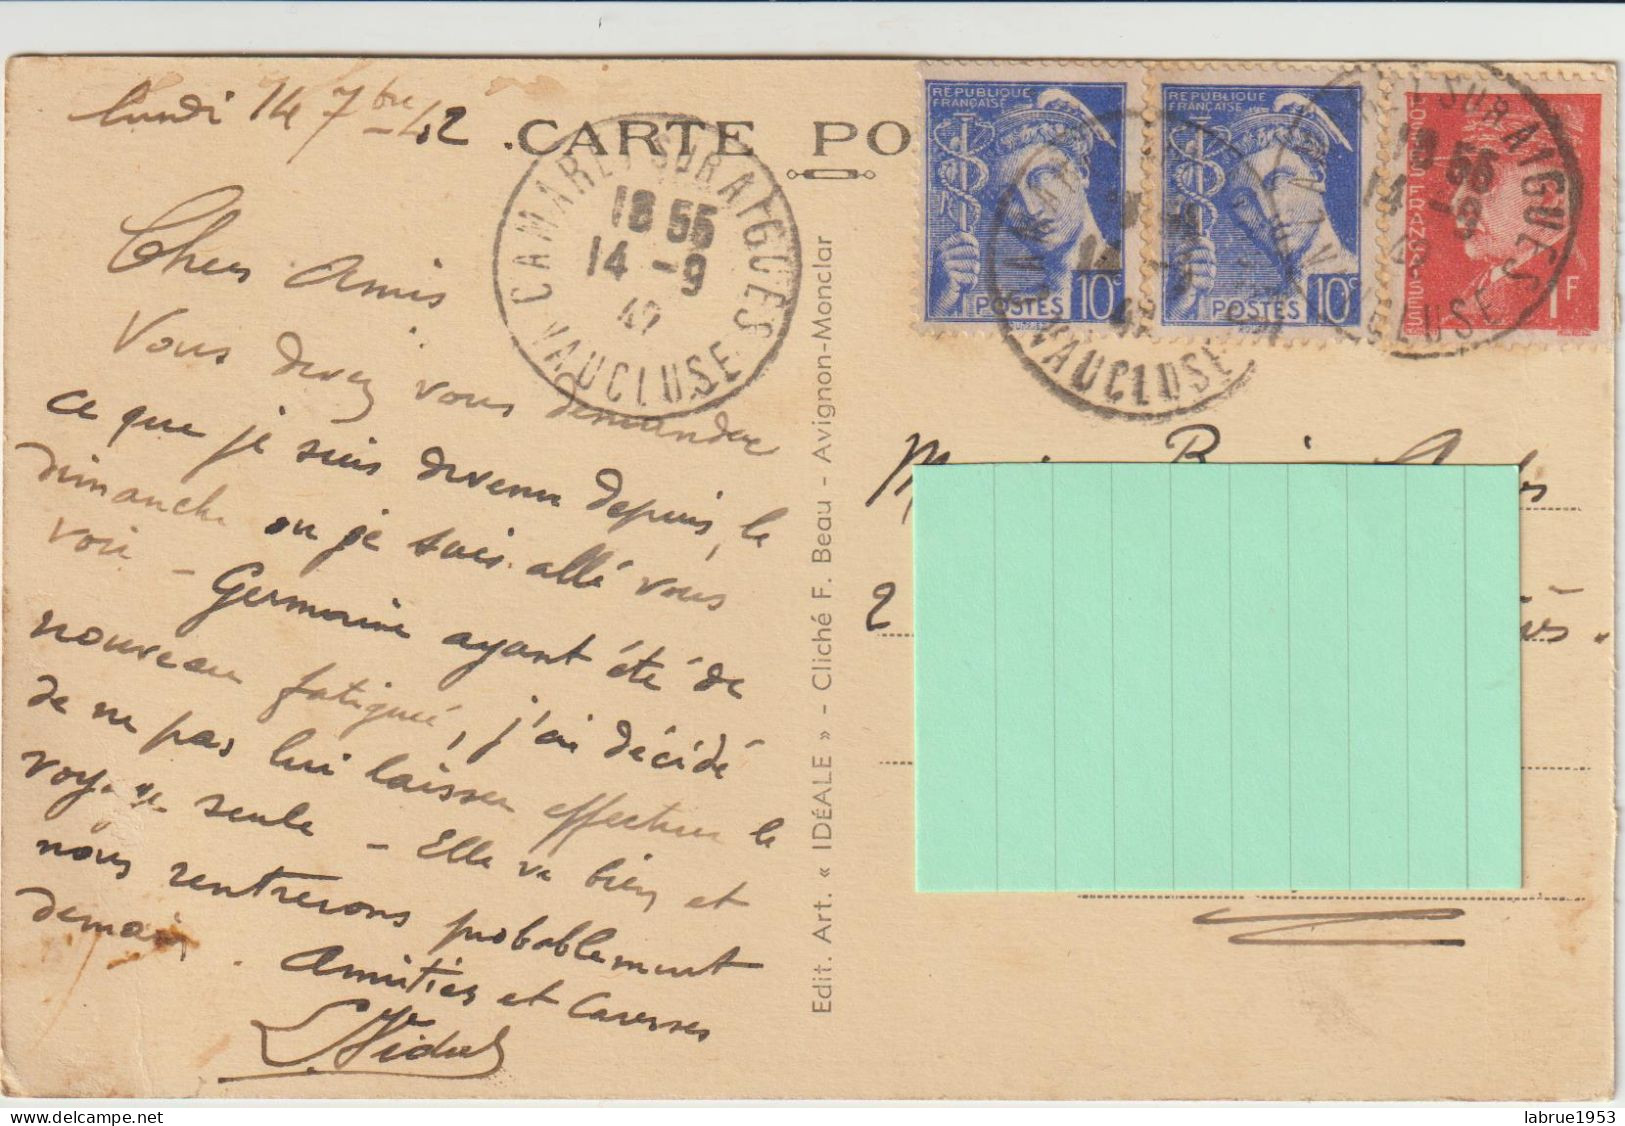 lundi 14 7bre-42
CARTE PO
CAMARET SUR AIGUES
18 55
14 - 9
42
VAUCLUSE
REPUBLIQUE
FRANÇAISE
POSTES 10c
REPUBLIQUE
FRANÇAISE
POSTES 10c
POSTES FRANÇAISES
1F
SUR AIGUES
18 55
14 - 9
VAUCLUSE
VAUCLUSE
Chers Amis
Vous devez vous demander
ce que je suis devenu depuis le
dimanche ou je suis allé vous
voir - Germaine ayant été de
nouveau fatiguée, j'ai décidé
de ne pas lui laisser effectuer le
voyage seule - Elle va bien et
nous rentrerons probablement
demain. Amitiés et Caresses
Vidal
Edit. Art. « IDÉALE » - Cliché F. Beau - Avignon-Monclar
2
labrue1953